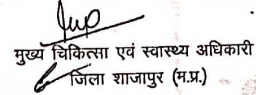 मुख्य चिकित्सा एवं स्वास्थ्य अधिकारी
जिला शाजापुर (म.प्र.)